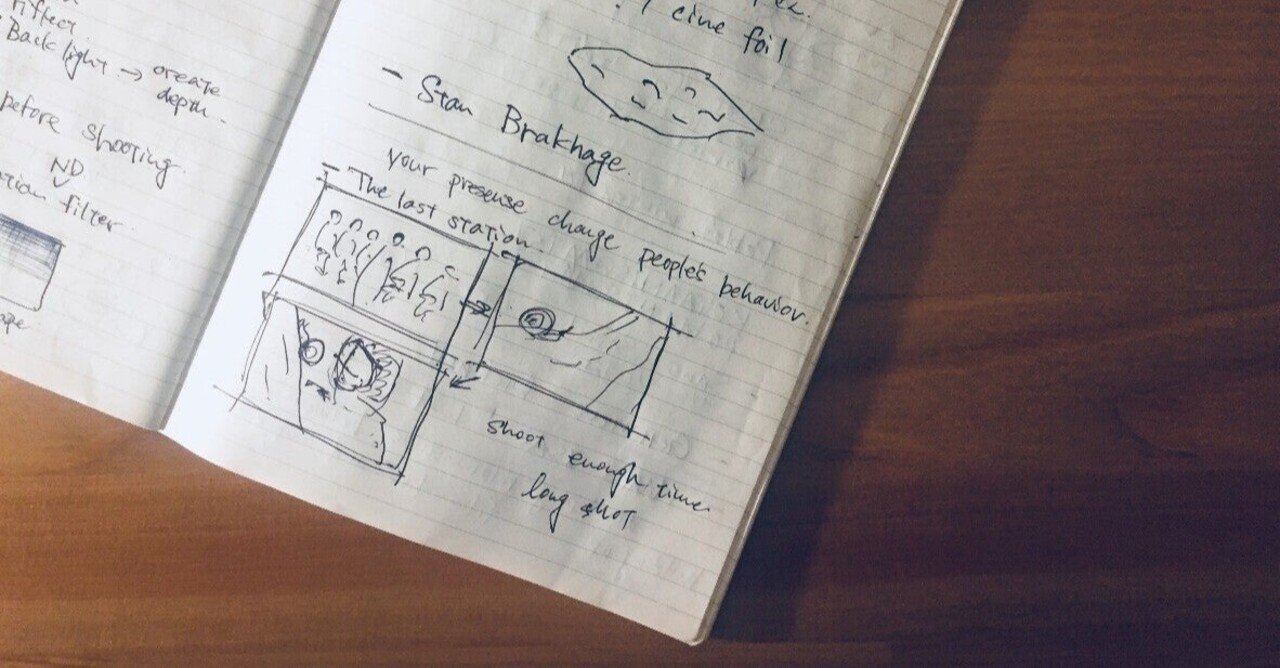 Back light → create
depth.
before shooting
ND
filter
cine foil
- Stan Brakhage.
your presense change people's behavior.
- The last station
shoot enough time
long shot